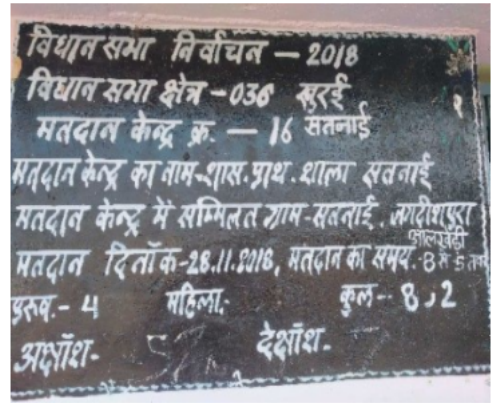 विधान सभा निर्वाचन - 2018
विधान सभा क्षेत्र - 036 खुरई
मतदान केन्द्र क्र. - 16 सतनाई
मतदान केन्द्र का नाम-शास. प्राथ. शाला सतनाई
मतदान केन्द्र में सम्मिलत ग्राम-सतनाई, जगदीशपुरा
आलखेड़ी
मतदान दिनाँक-28.11.2018, मतदान का समय- 8 से 5 तक
पुरुष.- 4 महिला.- कुल.- 8,2
अक्षाँश.- देक्षाँश.-